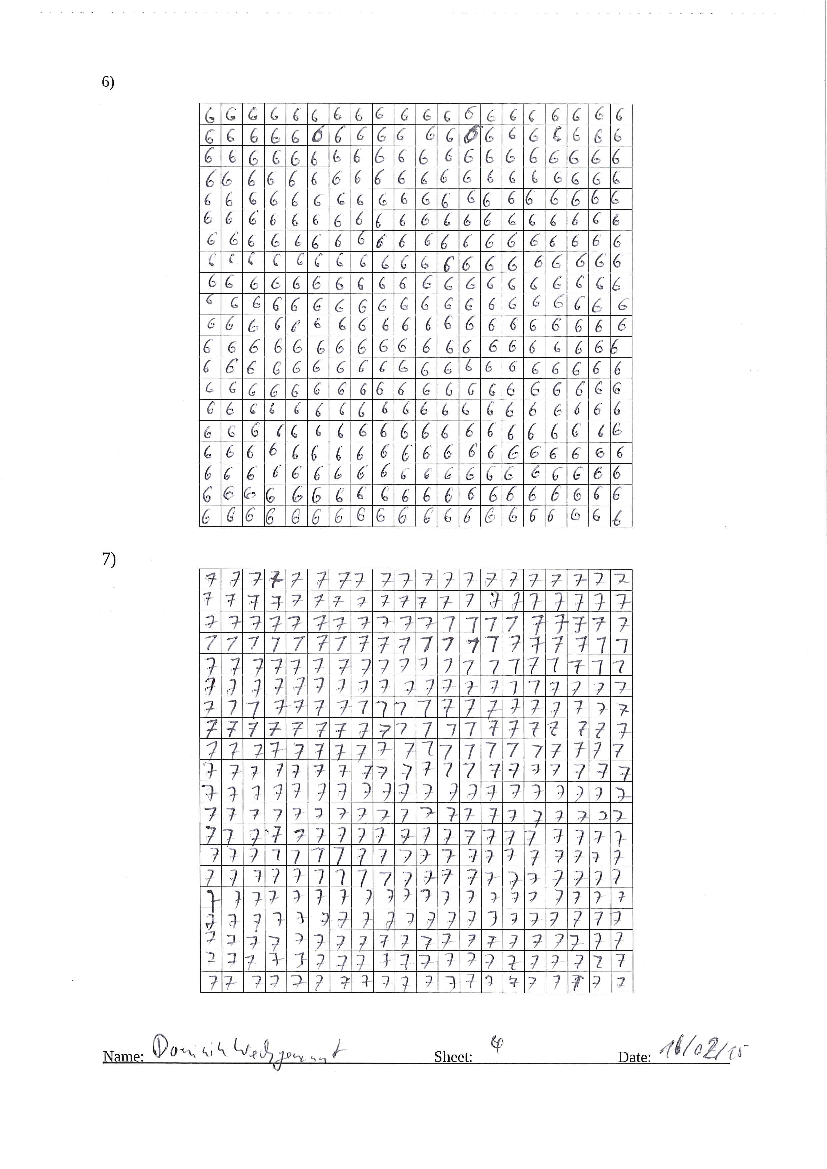 6)
6 6 6 6 6 6 6 6 6 6 6 6 6 6 6 6 6 6 6 6
6 6 6 6 6 6 6 6 6 6 6 6 6 6 6 6 6 6 6 6
6 6 6 6 6 6 6 6 6 6 6 6 6 6 6 6 6 6 6 6
6 6 6 6 6 6 6 6 6 6 6 6 6 6 6 6 6 6 6 6
6 6 6 6 6 6 6 6 6 6 6 6 6 6 6 6 6 6 6 6
6 6 6 6 6 6 6 6 6 6 6 6 6 6 6 6 6 6 6 6
6 6 6 6 6 6 6 6 6 6 6 6 6 6 6 6 6 6 6 6
6 6 6 6 6 6 6 6 6 6 6 6 6 6 6 6 6 6 6 6
6 6 6 6 6 6 6 6 6 6 6 6 6 6 6 6 6 6 6 6
6 6 6 6 6 6 6 6 6 6 6 6 6 6 6 6 6 6 6 6
6 6 6 6 6 6 6 6 6 6 6 6 6 6 6 6 6 6 6 6
6 6 6 6 6 6 6 6 6 6 6 6 6 6 6 6 6 6 6 6
6 6 6 6 6 6 6 6 6 6 6 6 6 6 6 6 6 6 6 6
6 6 6 6 6 6 6 6 6 6 6 6 6 6 6 6 6 6 6 6
6 6 6 6 6 6 6 6 6 6 6 6 6 6 6 6 6 6 6 6
6 6 6 6 6 6 6 6 6 6 6 6 6 6 6 6 6 6 6 6
6 6 6 6 6 6 6 6 6 6 6 6 6 6 6 6 6 6 6 6
6 6 6 6 6 6 6 6 6 6 6 6 6 6 6 6 6 6 6 6
6 6 6 6 6 6 6 6 6 6 6 6 6 6 6 6 6 6 6 6
6 6 6 6 6 6 6 6 6 6 6 6 6 6 6 6 6 6 6 6
7)
7 7 7 7 7 7 7 7 7 7 7 7 7 7 7 7 7 7 7 7
7 7 7 7 7 7 7 7 7 7 7 7 7 7 7 7 7 7 7 7
7 7 7 7 7 7 7 7 7 7 7 7 7 7 7 7 7 7 7 7
7 7 7 7 7 7 7 7 7 7 7 7 7 7 7 7 7 7 7 7
7 7 7 7 7 7 7 7 7 7 7 7 7 7 7 7 7 7 7 7
7 7 7 7 7 7 7 7 7 7 7 7 7 7 7 7 7 7 7 7
7 7 7 7 7 7 7 7 7 7 7 7 7 7 7 7 7 7 7 7
7 7 7 7 7 7 7 7 7 7 7 7 7 7 7 7 7 7 7 7
7 7 7 7 7 7 7 7 7 7 7 7 7 7 7 7 7 7 7 7
7 7 7 7 7 7 7 7 7 7 7 7 7 7 7 7 7 7 7 7
7 7 7 7 7 7 7 7 7 7 7 7 7 7 7 7 7 7 7 7
7 7 7 7 7 7 7 7 7 7 7 7 7 7 7 7 7 7 7 7
7 7 7 7 7 7 7 7 7 7 7 7 7 7 7 7 7 7 7 7
7 7 7 7 7 7 7 7 7 7 7 7 7 7 7 7 7 7 7 7
7 7 7 7 7 7 7 7 7 7 7 7 7 7 7 7 7 7 7 7
7 7 7 7 7 7 7 7 7 7 7 7 7 7 7 7 7 7 7 7
7 7 7 7 7 7 7 7 7 7 7 7 7 7 7 7 7 7 7 7
7 7 7 7 7 7 7 7 7 7 7 7 7 7 7 7 7 7 7 7
7 7 7 7 7 7 7 7 7 7 7 7 7 7 7 7 7 7 7 7
7 7 7 7 7 7 7 7 7 7 7 7 7 7 7 7 7 7 7 7
Name: Dominik Sheet: 4 Date: 16/02/15